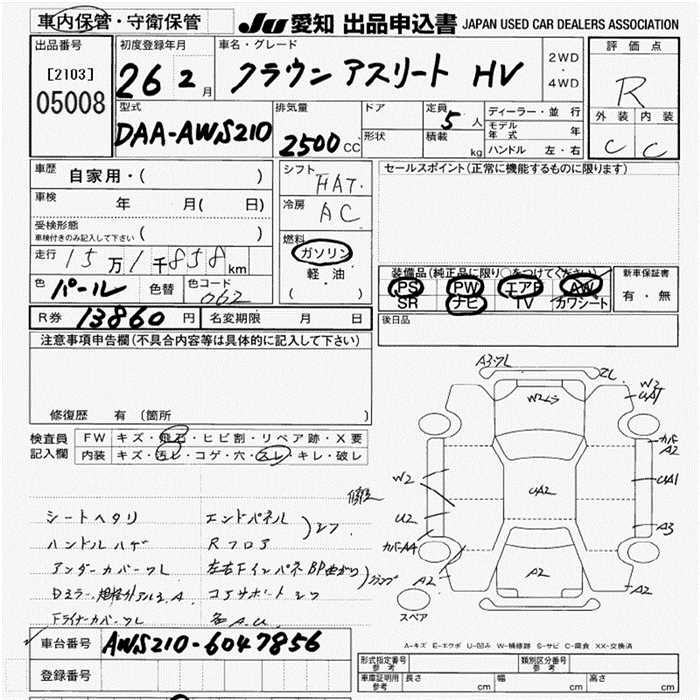 車内保管・守衛保管 JU 愛知 出品申込書 JAPAN USED CAR DEALERS ASSOCIATION
出品番号
[2103]
05008
初度登録年月
26 2月
車名・グレード
クラウン アスリート HV
2WD
・
4WD
評価点
R
外装 内装
C C
型式
DAA-AWS210
排気量
2500CC
ドア
形状
定員
5人
積載
kg
ディーラー・並行
モデル年式 年
ハンドル 左・右
車歴
自家用・( )
車検
年 月( 日)
受検形態
車検付きのみ記入して下さい ( )
走行 15万1千858km
色 パール 色替 色コード 062
シフト
FAT.
冷房
AC
燃料
ガソリン
軽・油
( )
セールスポイント(正常に機能するものに限ります)
装備品(純正品に限り○をつけてください)
PS PW エアB AW
SR ナビ TV カワシート
新車保証書
有・無
R券 13860円 名変期限 月 日
後日品
注意事項申告欄(不具合内容等は具体的に記入して下さい)
修復歴 有(箇所 )
検査員
記入欄
FW キズ・飛石・ヒビ割・リペア跡・X要
内装 キズ・汚レ・コゲ・穴・スレ・キレ・破レ
修復
シートヘタリ エンドパネル
ハンドルハゲ Rフロア
アンダーカバーワレ
コアサポート
ドライナーカバーワレ
A3・ワレ
W2
UA1
カバー
A2
UA1
A3
A2
W2
U2
カバーA4
A2
UA2
A2
スペア
A-キズ E-エクボ U-凹み W-補修跡 S-サビ C-腐食 XX-交換済
車台番号 AWS210-6047856
登録番号
形式指定番号
参考
類別区分番号
参考
車庫証明用
参考
長さ cm 幅 cm 高さ cm